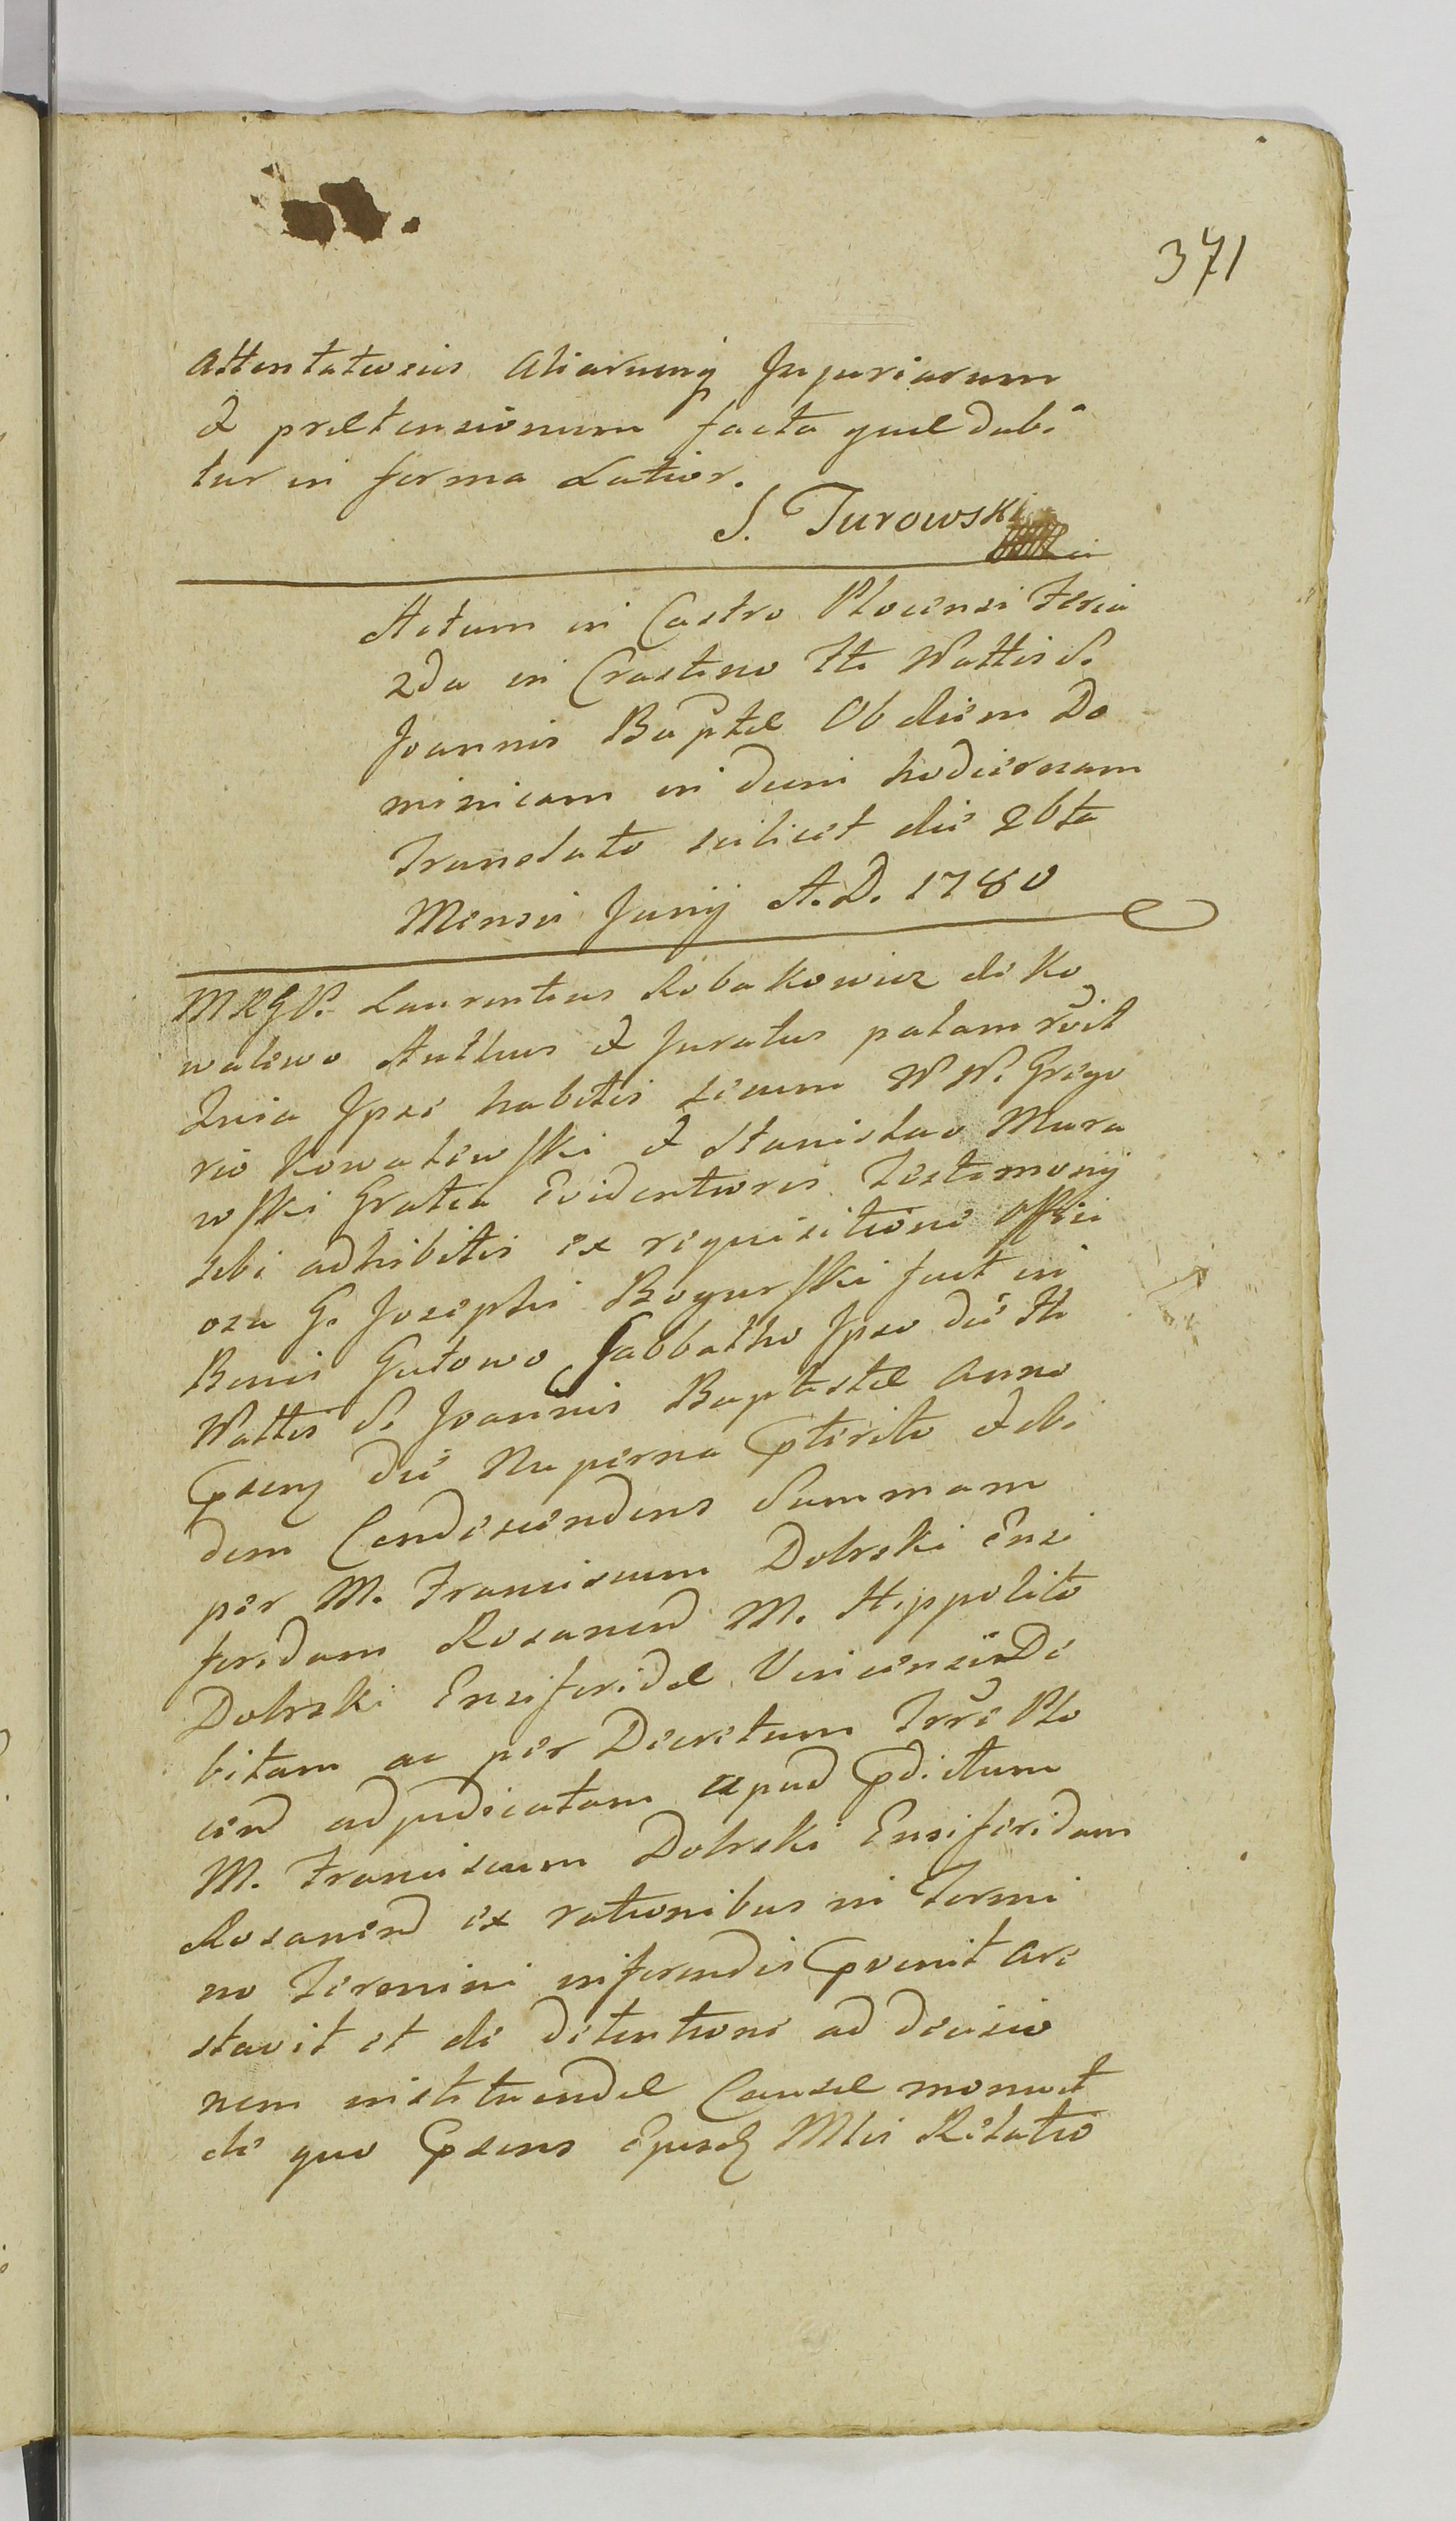 371
Attentatversus Aliarumq Injuriarum
& prætensionum facta quæ dabi
tur in forma Latior.
S. Turowski
Actum in Castro Plocensi Feria
2da in Crastino Fti Nattis S.
Joannis Baptæ Ob diem Do
minicam in diem hodiernam
Translato scilicet die 26ta
Mensis Junij A.D. 1780
MRGP. Laurentius Robakowicz de Ko
walewo Authus & Juratus palam rvit
Quia Ipse habitis secum NN. Grego
rio Kowalewski & Stanislao Mura
wski Gratia Evidentioris Testimonij
sibi adhibitis ex requisitione Offici
osa G. Josephi Bogurski fuit in
Bonis Gutowo Sabbatho Ipso die Fti
Nattis S. Joannis Baptistæ Anno
pseng die Nuperna pterito & ibi
dem Condescendens Summam
per M. Franciscum Dobrski Ensi
feridam Rosanen M. Hippolito
Dobrski Ensiferidæ Vinicensi De
bitam ac per Decretum Trre Plo
cen adjudicatam apud pdictum
M. Franciscum Dobrski Ensiferidam
Rosanen ex rationibus in Termi
no Termini inferendis pvenit are
stavit et de detentione ad decisio
nem instituendæ Causæ monuit
de quo psens Ejusd Mlis Relatio